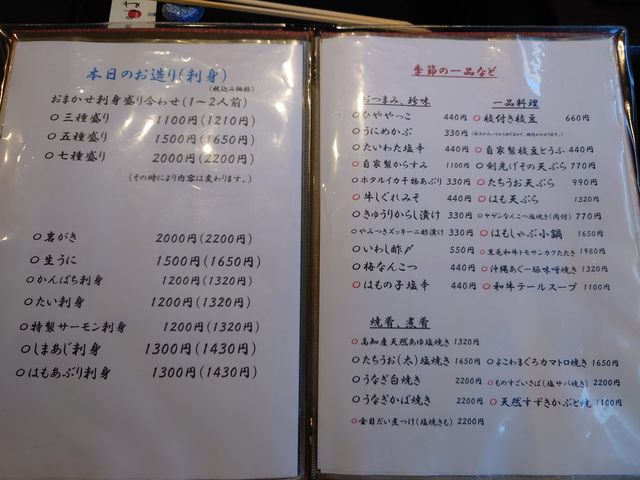 本日のお造り(刺身)
(税込み価格)
おまかせ刺身盛り合わせ(1〜2人前)
○三種盛り 1100円(1210円)
○五種盛り 1500円(1650円)
○七種盛り 2000円(2200円)
(その時により内容は変わります。)
○岩がき 2000円(2200円)
○生うに 1500円(1650円)
○かんぱち刺身 1200円(1320円)
○たい刺身 1200円(1320円)
○特製サーモン刺身 1200円(1320円)
○しまあじ刺身 1300円(1430円)
○はもあぶり刺身 1300円(1430円)
季節の一品など
おつまみ、珍味
○ひややっこ 440円
○うにめかぶ 330円
○たいわた塩辛 440円
○自家製からすみ 1100円
○ホタルイカ干物あぶり 330円
○牛しぐれみそ 440円
○きゅうりからし漬け 330円
○やみつきズッキーニ酢漬け 330円
○いわし酢〆 550円
○梅なんこつ 440円
○はもの子塩辛 440円
一品料理
○枝付き枝豆 660円
○自家製枝豆とうふ 440円
○剣先げその天ぷら 770円
○たちうお天ぷら 990円
○はも天ぷら 1320円
○ヤゲンなんこつ塩焼き(肉付) 770円
○はもしゃぶ小鍋 1650円
○黒毛和牛トモサンカクたたき 1980円
○沖縄あぐー豚味噌焼き 1320円
○和牛テールスープ 1100円
焼肴、煮肴
○高知産天然あゆ塩焼き 1320円
○たちうお(太)塩焼き 1650円
○うなぎ白焼き 2200円
○うなぎかば焼き 2200円
○金目だい煮つけ(塩焼きも) 2200円
○よこわまぐろカマトロ焼き 1650円
○ものすごいさば(塩サバ焼き) 2200円
○天然すずきかぶと焼 1100円